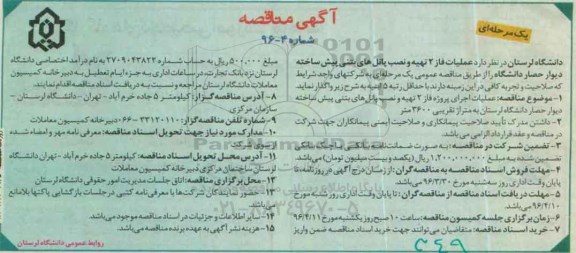 آگهی مناقصه
شماره ۴-۹۶
یک مرحله‌ای
دانشگاه لرستان در نظر دارد عملیات فاز ۲ تهیه و نصب پانل های بتنی پیش ساخته
دیوار حصار دانشگاه را از طریق مناقصه عمومی یک مرحله‌ای به شرکتهای واجد شرایط
که صلاحیت و تجربه کافی در این زمینه دارند با حداقل رتبه ۵ ابنیه به شرح زیر واگذار نماید.
۱- موضوع مناقصه: عملیات اجرای پروژه فاز ۲ تهیه و نصب پانل های بتنی پیش ساخته
دیوار حصار دانشگاه لرستان به متراژ تقریبی ۳۶۰۰ متر
۲- داشتن مدرک تأیید صلاحیت پیمانکاری و صلاحیت ایمنی پیمانکاران جهت شرکت
در مناقصه و عقد قرارداد الزامی می باشد.
۳- تضمین شرکت در مناقصه: به صورت ضمانت
تضمین شده به مبلغ ۱,۲۰۰,۰۰۰,۰۰۰ ریال (یکصد و بیست میلیون تومان) می باشد.
۴- مهلت فروش اسناد مناقصه به مناقصه گران: از زمان درج آگهی در روزنامه تا
پایان وقت اداری روز سه شنبه مورخ ۹۶/۳/۳۰ می باشد.
۵- مهلت دریافت اسناد مناقصه از مناقصه گران: تا پایان وقت اداری روز شنبه مورخ
۹۶/۴/۱۰ می باشد.
۶- زمان برگزاری جلسه کمیسیون مناقصه: ساعت ۱۰ صبح روز یکشنبه مورخ ۹۶/۴/۱۱
۷- خرید اسناد مناقصه: متقاضیان می توانند جهت خرید اسناد مناقصه ضمن واریز
مبلغ ۵۰۰,۰۰۰ ریال به حساب شماره ۲۷۰۹۰۴۳۸۲۲ به نام درآمد اختصاصی دانشگاه
لرستان نزد بانک تجارت، در ساعات اداری به جزء ایام تعطیل به دبیرخانه کمیسیون
معاملات دانشگاه لرستان مراجعه و نسبت به دریافت اسناد مناقصه اقدام نمایند.
۸- آدرس مناقصه گزار: کیلومتر ۵ جاده خرم آباد - تهران - دانشگاه لرستان -
سازمان مرکزی
۹- شماره تلفن مناقصه گزار: ۳۳۱۲۰۱۱۰-۰۶۶ دبیرخانه کمیسیون معاملات
۱۰- مدارک مورد نیاز جهت تحویل اسناد مناقصه: معرفی نامه مهر و امضاء شده
۱۱- آدرس محل تحویل اسناد مناقصه: کیلومتر ۵ جاده خرم آباد - تهران دانشگاه
لرستان ساختمان مرکزی دبیرخانه کمیسیون معاملات
۱۲- محل برگزاری مناقصه: اتاق جلسات مدیریت امور حقوقی دانشگاه
۱۳- حضور نمایندگان شرکت ها با معرفی نامه کتبی در جلسات بازگشایی پاکتها بلامانع
می باشد.
۱۴- سایر اطلاعات و جزئیات در اسناد مناقصه موجود می باشد.
۱۵- هزینه نشر آگهی به عهده برنده مناقصه می باشد.
روابط عمومی دانشگاه لرستان